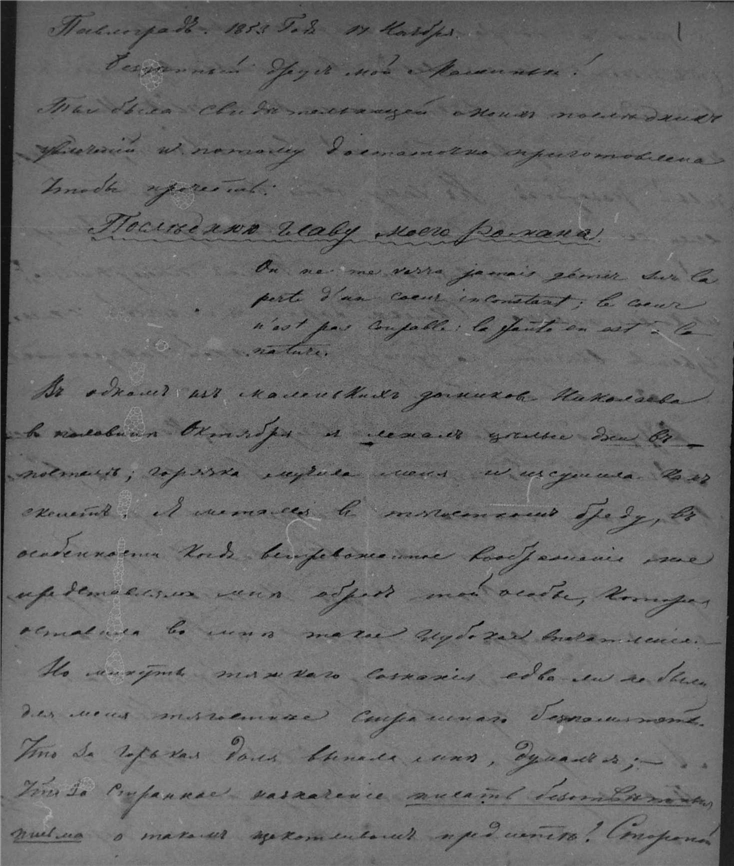 Павлоградъ. 1853 Годъ 17 Ноября.
1
Безцѣнный другъ мой Машинька!
Ты была свидѣтельницей моихъ послѣднихъ
увлеченій и потому достаточно приготовлена
чтобы прочесть:
Послѣднюю главу моего романа.
On ne me verra jamais gémir sur la
perte d'un coeur inconstant; le coeur
n'est pas coupable: la faute en est à la
nature.
Въ одномъ изъ маленькихъ домиковъ Николаева
въ половинѣ Октября я лежалъ цѣлые дни въ
постелѣ; горячка мучила меня и изсушила какъ
скелетъ. Я метался въ тягостномъ бреду, въ
особенности когда встревоженное воображеніе мое
представляло мнѣ образъ той особы, которая
оставила во мнѣ такое глубокое впечатлѣніе.
Но минуты тяжкаго сознанія едва ли не были
для меня тягостнѣе страшнаго безпамятства.
Что за горькая доля выпала мнѣ, думалъ я; —
Что за странное назначеніе писать безотвѣтныя
письма о такомъ щекотливомъ предметѣ! Стороной